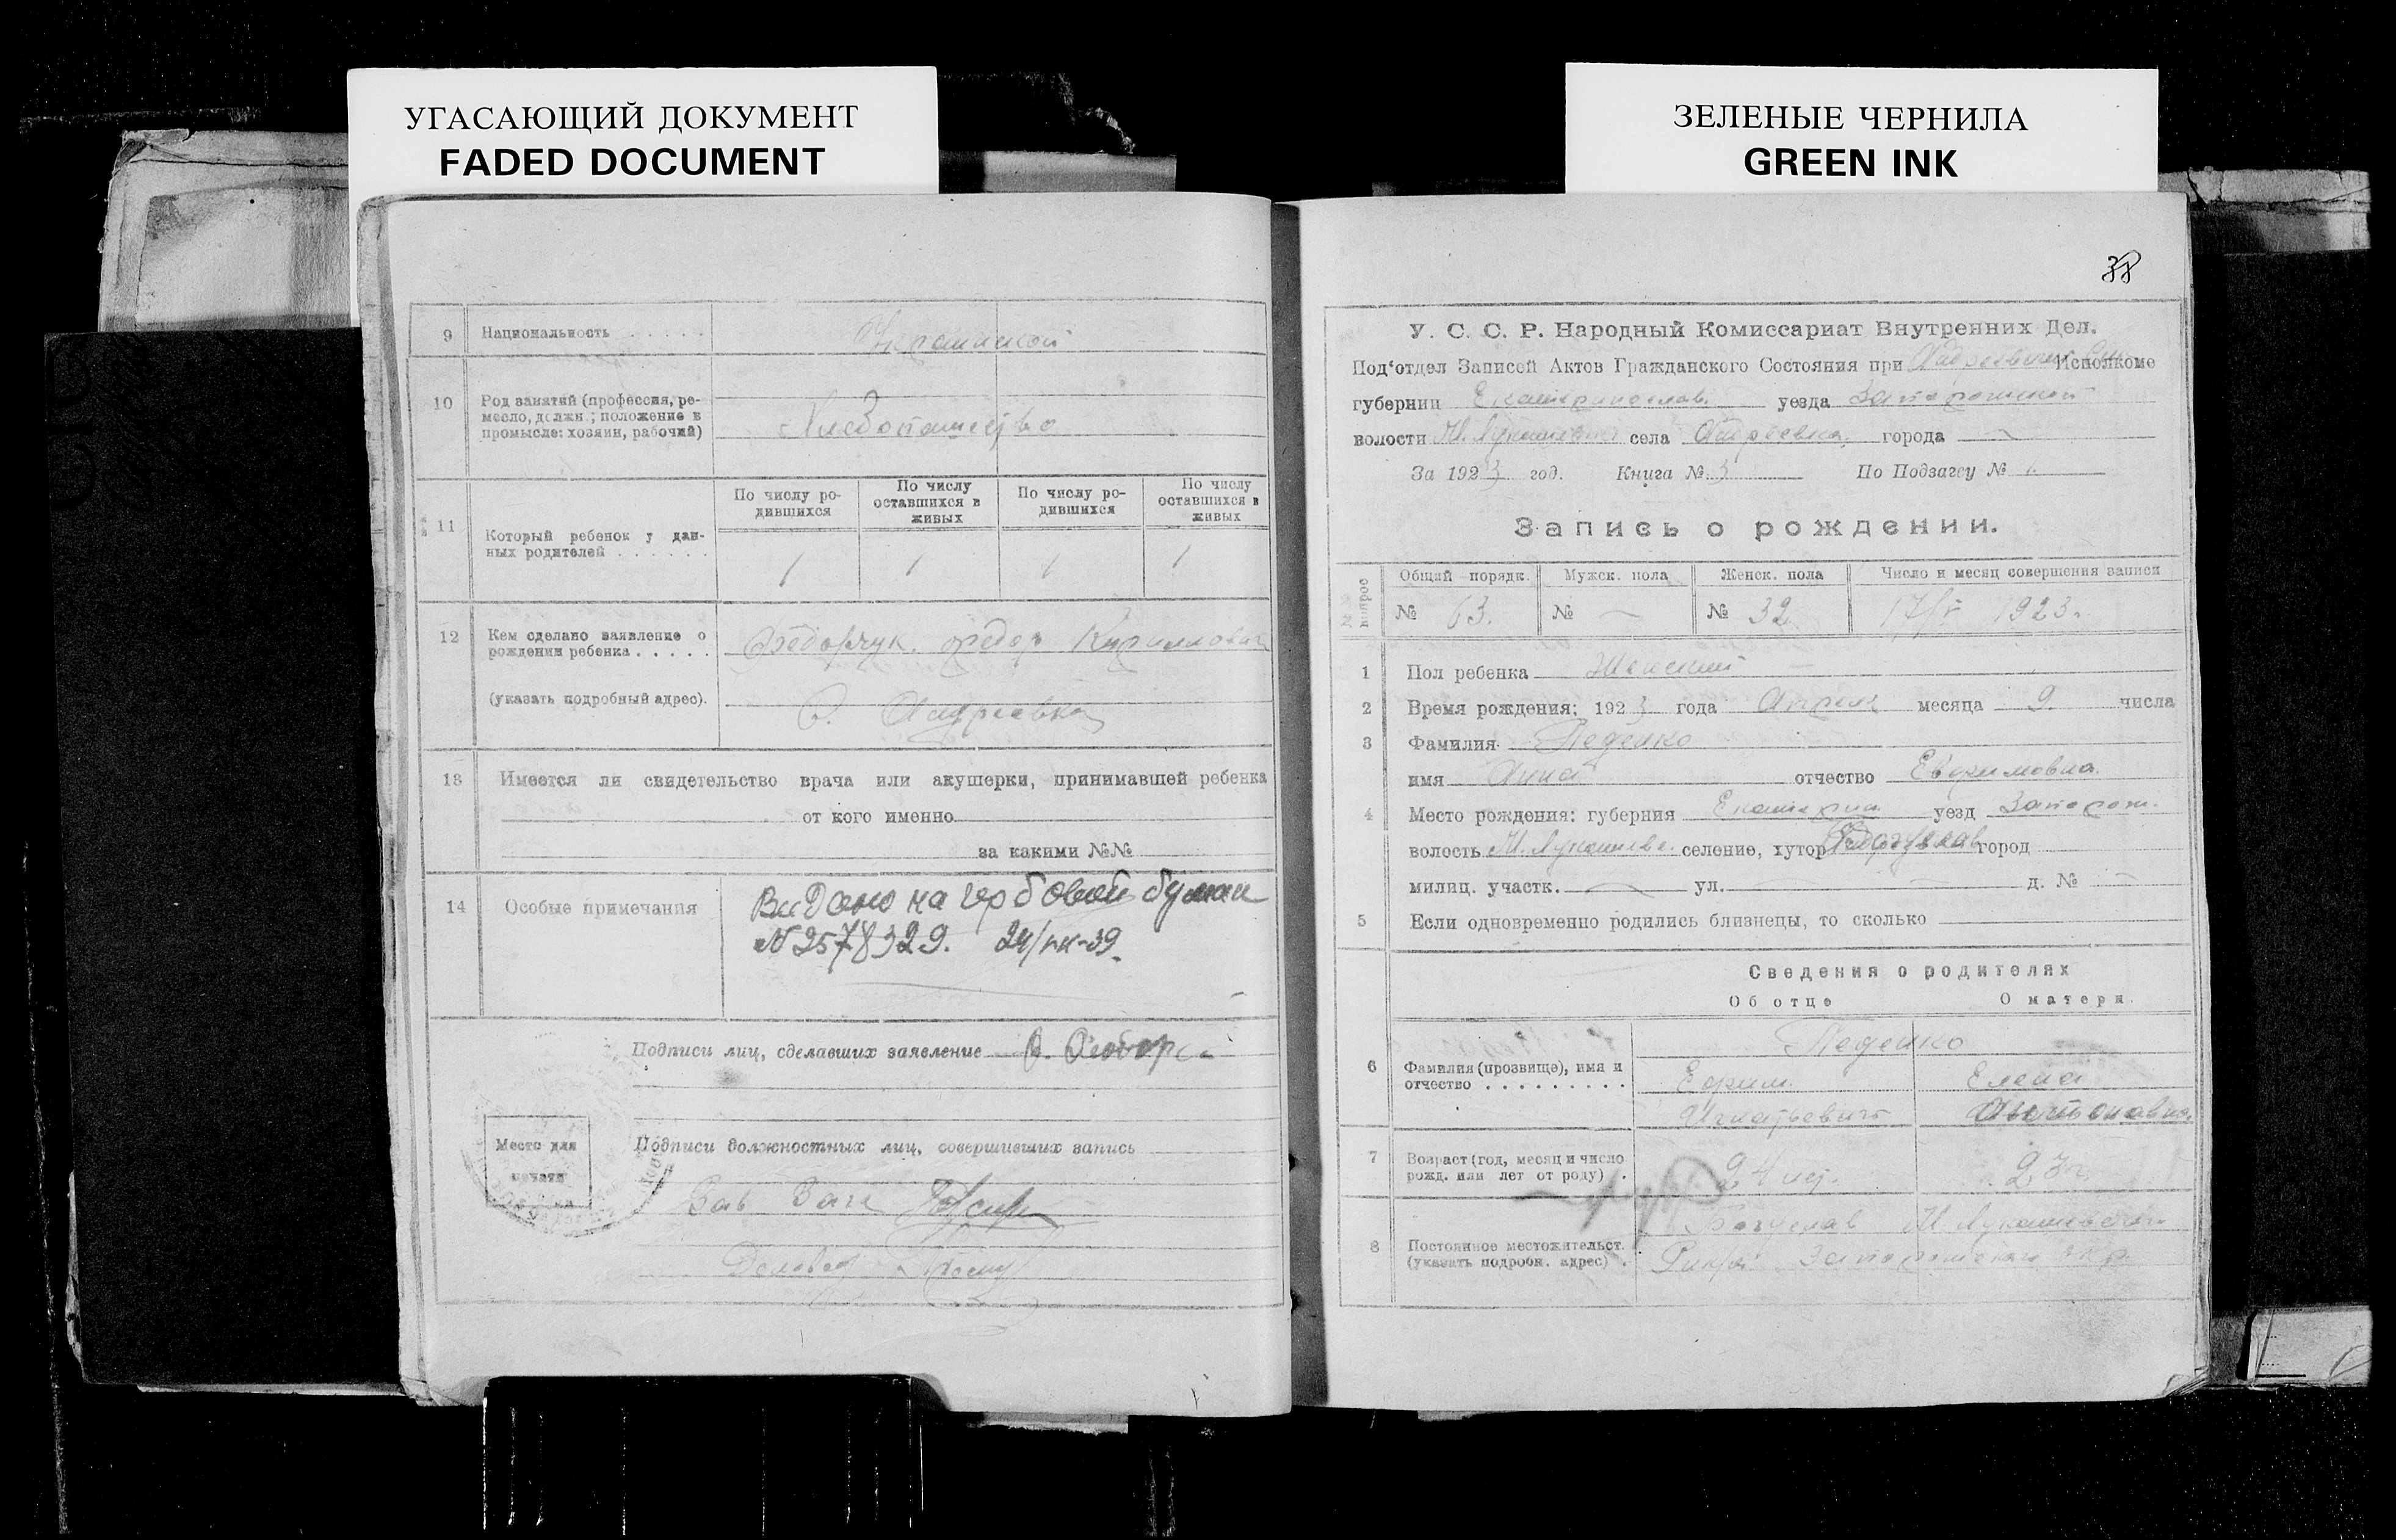 УГАСАЮЩИЙ ДОКУМЕНТ
FADED DOCUMENT
9 Национальность . . . . . Украинской
10 Род занятий (профессия, ре-
месло, должн.; положение в
промысле: хозяин, рабочий)
Хлебопашество
11 Который ребенок у дан-
ных родителей . . . . . .
По числу ро-
дившихся
По числу
оставшихся в
живых
По числу ро-
дившихся
По числу
оставшихся в
живых
1 1 1 1
12 Кем сделано заявление о
рождении ребенка . . . . .
Федорчук Федор Кириллович
(указать подробный адрес).
с. Андреевка
13 Имеется ли свидетельство врача или акушерки, принимавшей ребенка
от кого именно
за какими №№
14 Особые примечания
Выдано на гербовой бумаги
N 2578329. 24/ -39.
Подписи лиц, сделавших заявление
Место для
печати
Подписи должностных лиц, совершивших запись
Зав Загс
Деловод
ЗЕЛЕНЫЕ ЧЕРНИЛА
GREEN INK
38
У. С. С. Р. Народный Комиссариат Внутренних Дел.
Под‘отдел Записей Актов Гражданского Состояния при Исполкоме
губернии Екатеринослав. уезда Запорожской
волости М. Лукашевка села Андреевка города —
За 1923 год. Книга № 3 По Подзагсу № "
Запись о рождении.
№№ вопрос
Общий порядк. Мужск. пола Женск. пола Число и месяц совершения записи
№ 63. № — № 32 17/IV 1923 г.
1 Пол ребенка Женский
2 Время рождения: 1923 года Апреля месяца 9. числа
3 Фамилия Педенко
имя Анна отчество Евфимовна
4 Место рождения: губерния Екатерин уезд Запорож.
волость М. Лукашев. селение, хутор Богуслав город
милиц. участк. — ул. д. № —
5 Если одновременно родились близнецы, то сколько
Сведения о родителях
Об отце О матери.
6 Фамилия (прозвище), имя и
отчество . . . . . . . . .
Педенко
Ефим Елена
Игнатьевич Антоновна
7 Возраст (год, месяц и число
рожд. или лет от роду) .
24 лет. 23 г.
8 Постоянное местожительст.
(указать подробн. адрес) .
Богуслав М. Лукашевской
Запорожской окр.